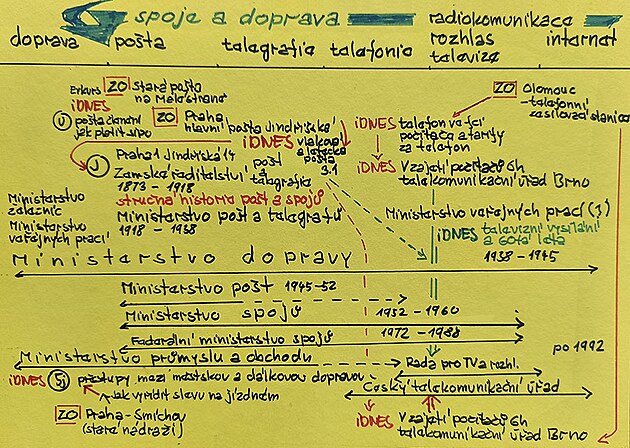 spoje a doprava
doprava
pošta
telegrafia telafonia
radiokomunikace
rozhlas
televize
internet
Exkurs ZO Stará pošta
na Malé straně
iDNES
jak platit SIPO
ZO Praha
hlavní pošta Jindřišská
iDNES vlaková
a letecká
pošta
3.1
Praha 1 Jindřišská 14
Zemské ředitelství pošt
a telegrafia
1873 - 1918
stručná historie pošt a spojů
Ministerstvo pošt a telegrafů
1918 - 1938
Ministerstvo
železnic
Ministerstvo
veřejných prací
ZO Olomouc
-telefonní
zesilovací stanice
iDNES telefon
počítače a tarify
za telefon
iDNES V zajetí počítačů 6h
telekomunikační úřad Brno
Ministerstvo veřejných prací (?)
iDNES televizní vysílání
a 60tá léta
1938 - 1945
Ministerstvo dopravy
Ministerstvo pošt 1945-52
Ministerstvo spojů 1952 - 1960
Federální ministerstvo spojů 1972 - 1988
Ministerstvo průmyslu a obchodu
Rada pro TV a rozhl.
po 1992
iDNES 5j přestupy mezi městskou a dálkovou dopravou
jak vyřídit slevu na jízdném
Český telekomunikační úřad
ZO Praha-Smíchov
(staré nádraží)
iDNES V zajetí počítačů 6h
telekomunikační úřad Brno